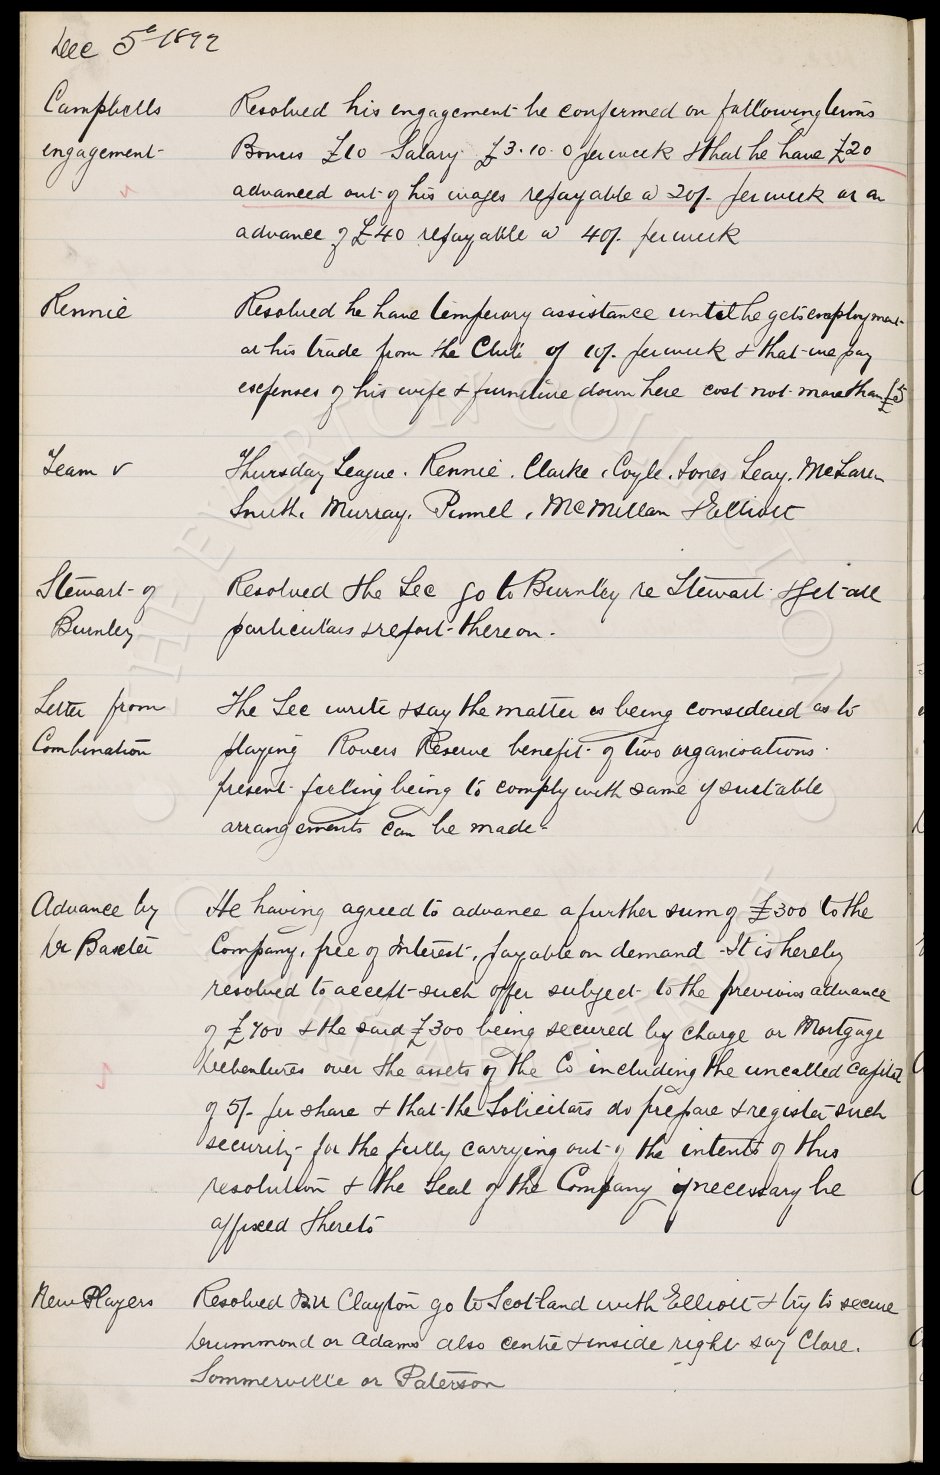 Dec 5th 1892
Campbells engagement
Resolved his engagement be confirmed on following terms
Bonus £10 Salary £3.10.0 per week & that he have £20
advanced out of his wages repayable @ 20/- per week or an
advance of £40 repayable @ 40/- per week
Rennie
Resolved he have temperary assistance until he gets employment
at his trade from the Club of 10/- per week & that we pay
expenses of his wife & furniture down here cost not more than £5
Team v
Thursday League. Rennie. Clarke, Coyle, Jones Leay. McLaren
Smith, Murray, Pinnel, McMillan & Elliott
Stewart of Burnley
Resolved the Sec go to Burnley re Stewart & get all
particulars & report thereon.
Letter from Combination
The Sec write & say the matter is being considered as to
playing Rovers Reserve benefit of two organisations.
present feeling being to comply with same if suitable
arrangements can be made
Advance by Dr Baxter
He having agreed to advance a further sum of £300 to the
Company, free of Interest, payable on demand - It is hereby
resolved to accept such offer subject to the previous advance
of £700 & the said £300 being secured by charge or Mortgage
Debentures over the assets of the Co including the uncalled capital
of 5/- per share & that the Solicitors do prepare & register such
security for the fully carrying out of the intents of this
resolution & the Seal of the Company if necessary be
affixed thereto
New Players
Resolved Clayton go to Scotland with Elliott & try to secure
Drummond or Adams also centre & inside right say Clare.
Sommerville or Paterson
THE EVERTON COLLECTION